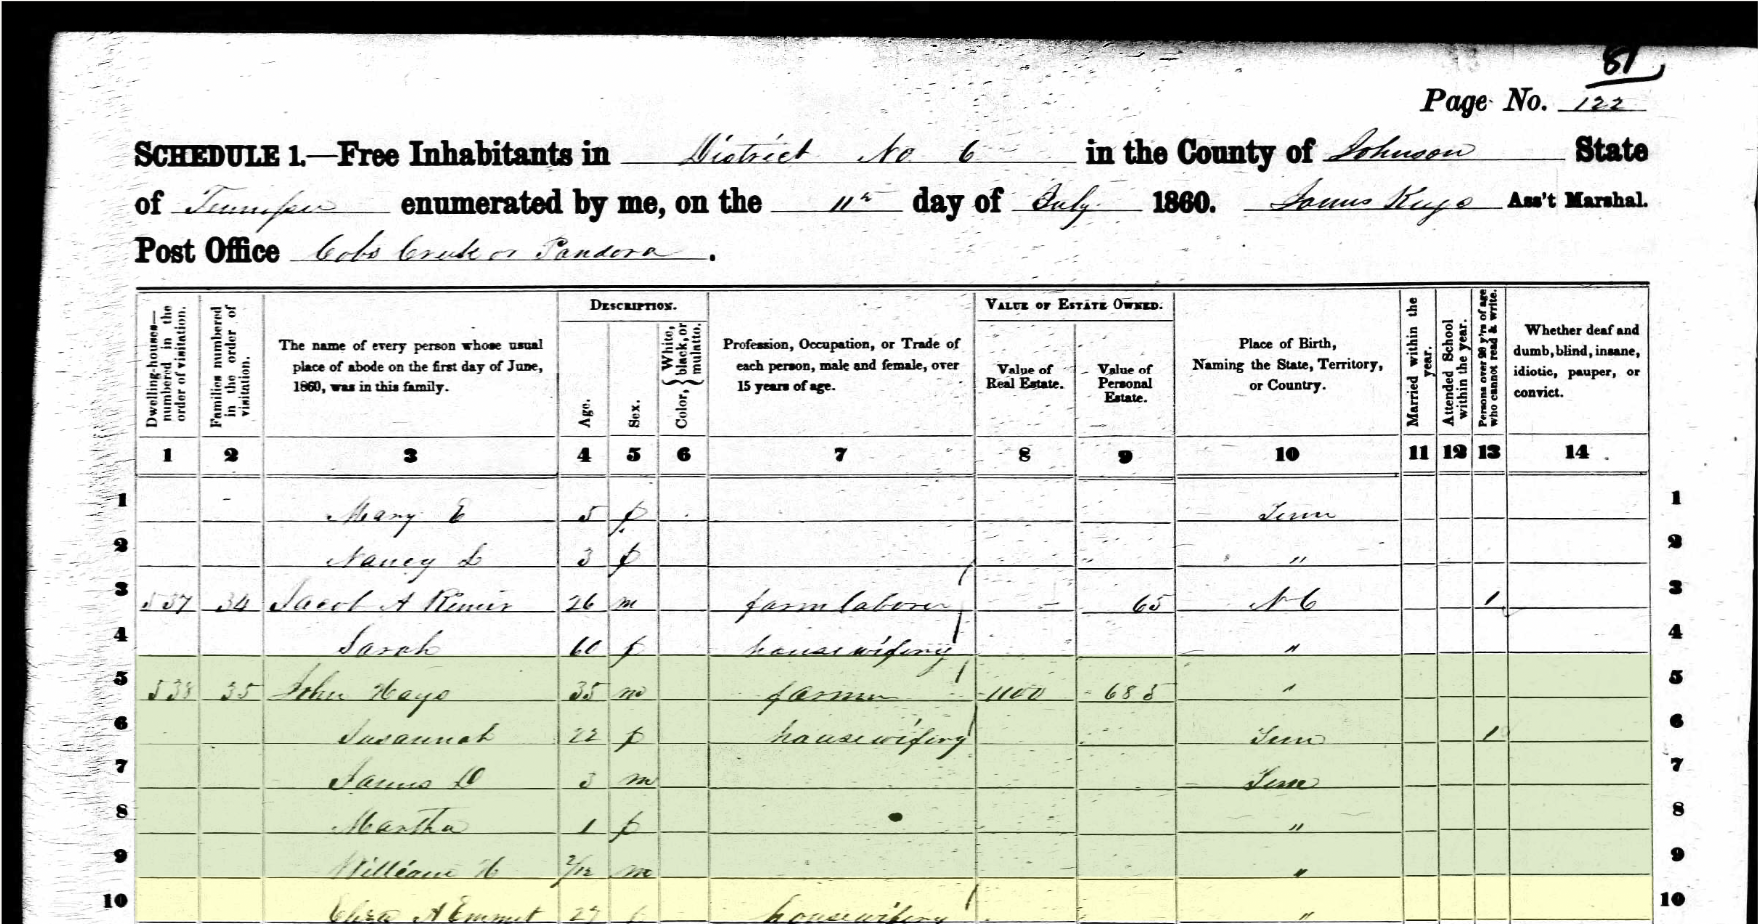 81
Page No. 122
SCHEDULE 1.—Free Inhabitants in District No 6 in the County of Johnson State
of Tennessee enumerated by me, on the 11th day of July 1860. James Keys Ass't Marshal.
Post Office Cobs Creek or Pandora.
Dwelling-houses—numbered in the order of visitation.
Families numbered in the order of visitation.
The name of every person whose usual place of abode on the first day of June, 1860, was in this family.
DESCRIPTION.
Age.
Sex.
Color, } White, black, or mulatto.
Profession, Occupation, or Trade of each person, male and female, over 15 years of age.
VALUE OF ESTATE OWNED.
Value of Real Estate.
Value of Personal Estate.
Place of Birth, Naming the State, Territory, or Country.
Married within the year.
Attended School within the year.
Persons over 20 y'rs of age who cannot read & write.
Whether deaf and dumb, blind, insane, idiotic, pauper, or convict.
1 2 3 4 5 6 7 8 9 10 11 12 13 14
1 Mary E 5 f Tenn 1
2 Nancy L 3 f " 2
3 537 34 Jacob A 26 m farm laborer 65 NC 1 3
4 Sarah 60 f housewifery " 4
5 538 35 John Hays 35 m farmer 1100 685 " 5
6 Susannah 22 f housewifery Tenn 1 6
7 James D 3 m Tenn 7
8 Martha 1 f " 8
9 William H 2/12 m " 9
10 Eliza A Emmet 27 f housewifery " 10